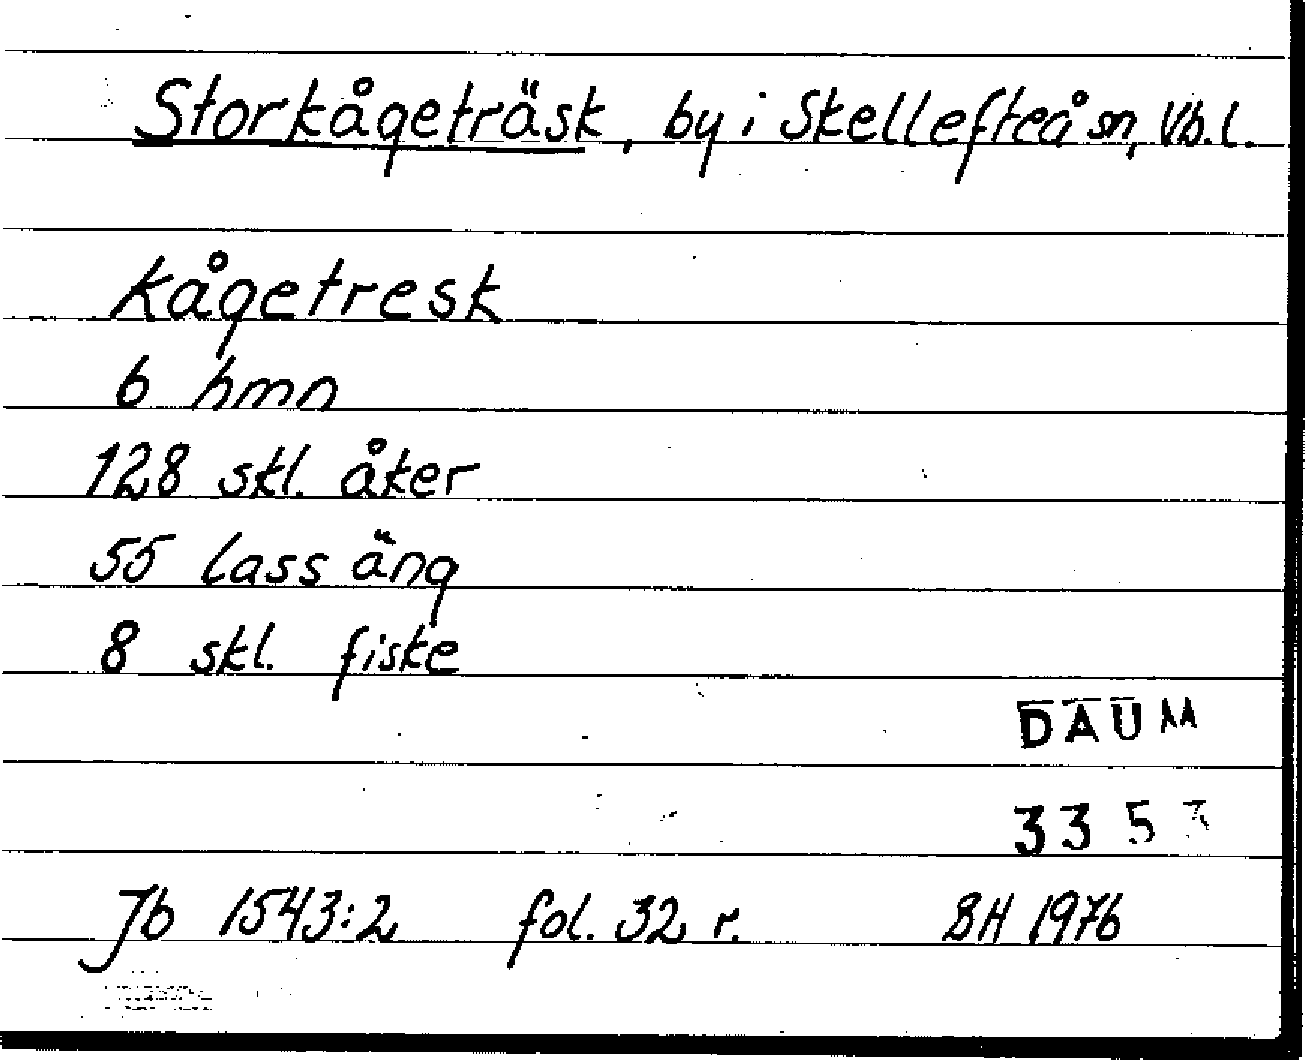 Storkågeträsk, by i Skellefteå sn, Vb.l.
Kågetresk
6 hmn
128 skl. åker
55 lass äng
8 skl. fiske
DAUM
3353
Jb 1543:2 fol. 32 r. BH 1976